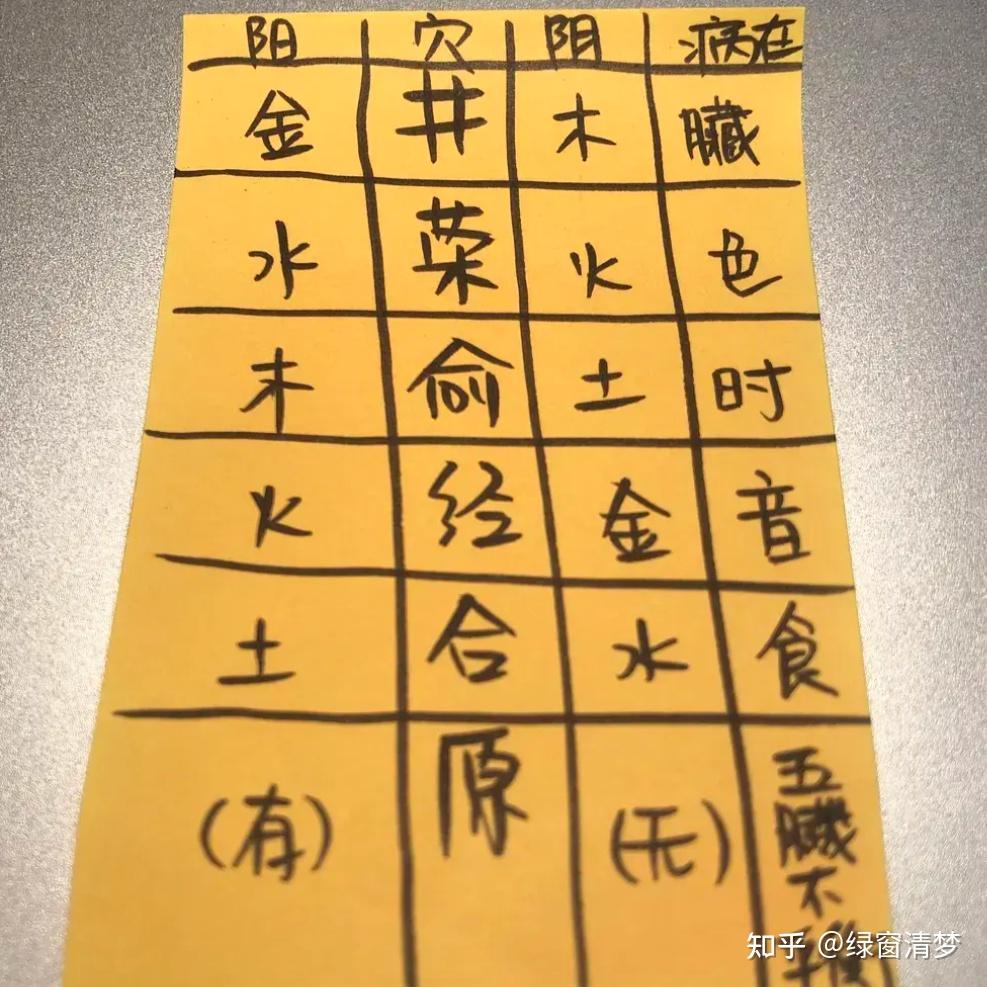 阳 穴 阴 病在
金 井 木 臓
水 荣 火 色
木 俞 土 时
火 经 金 音
土 合 水 食
(有) 原 (无) 五
臓
不
知乎 @绿窗清梦